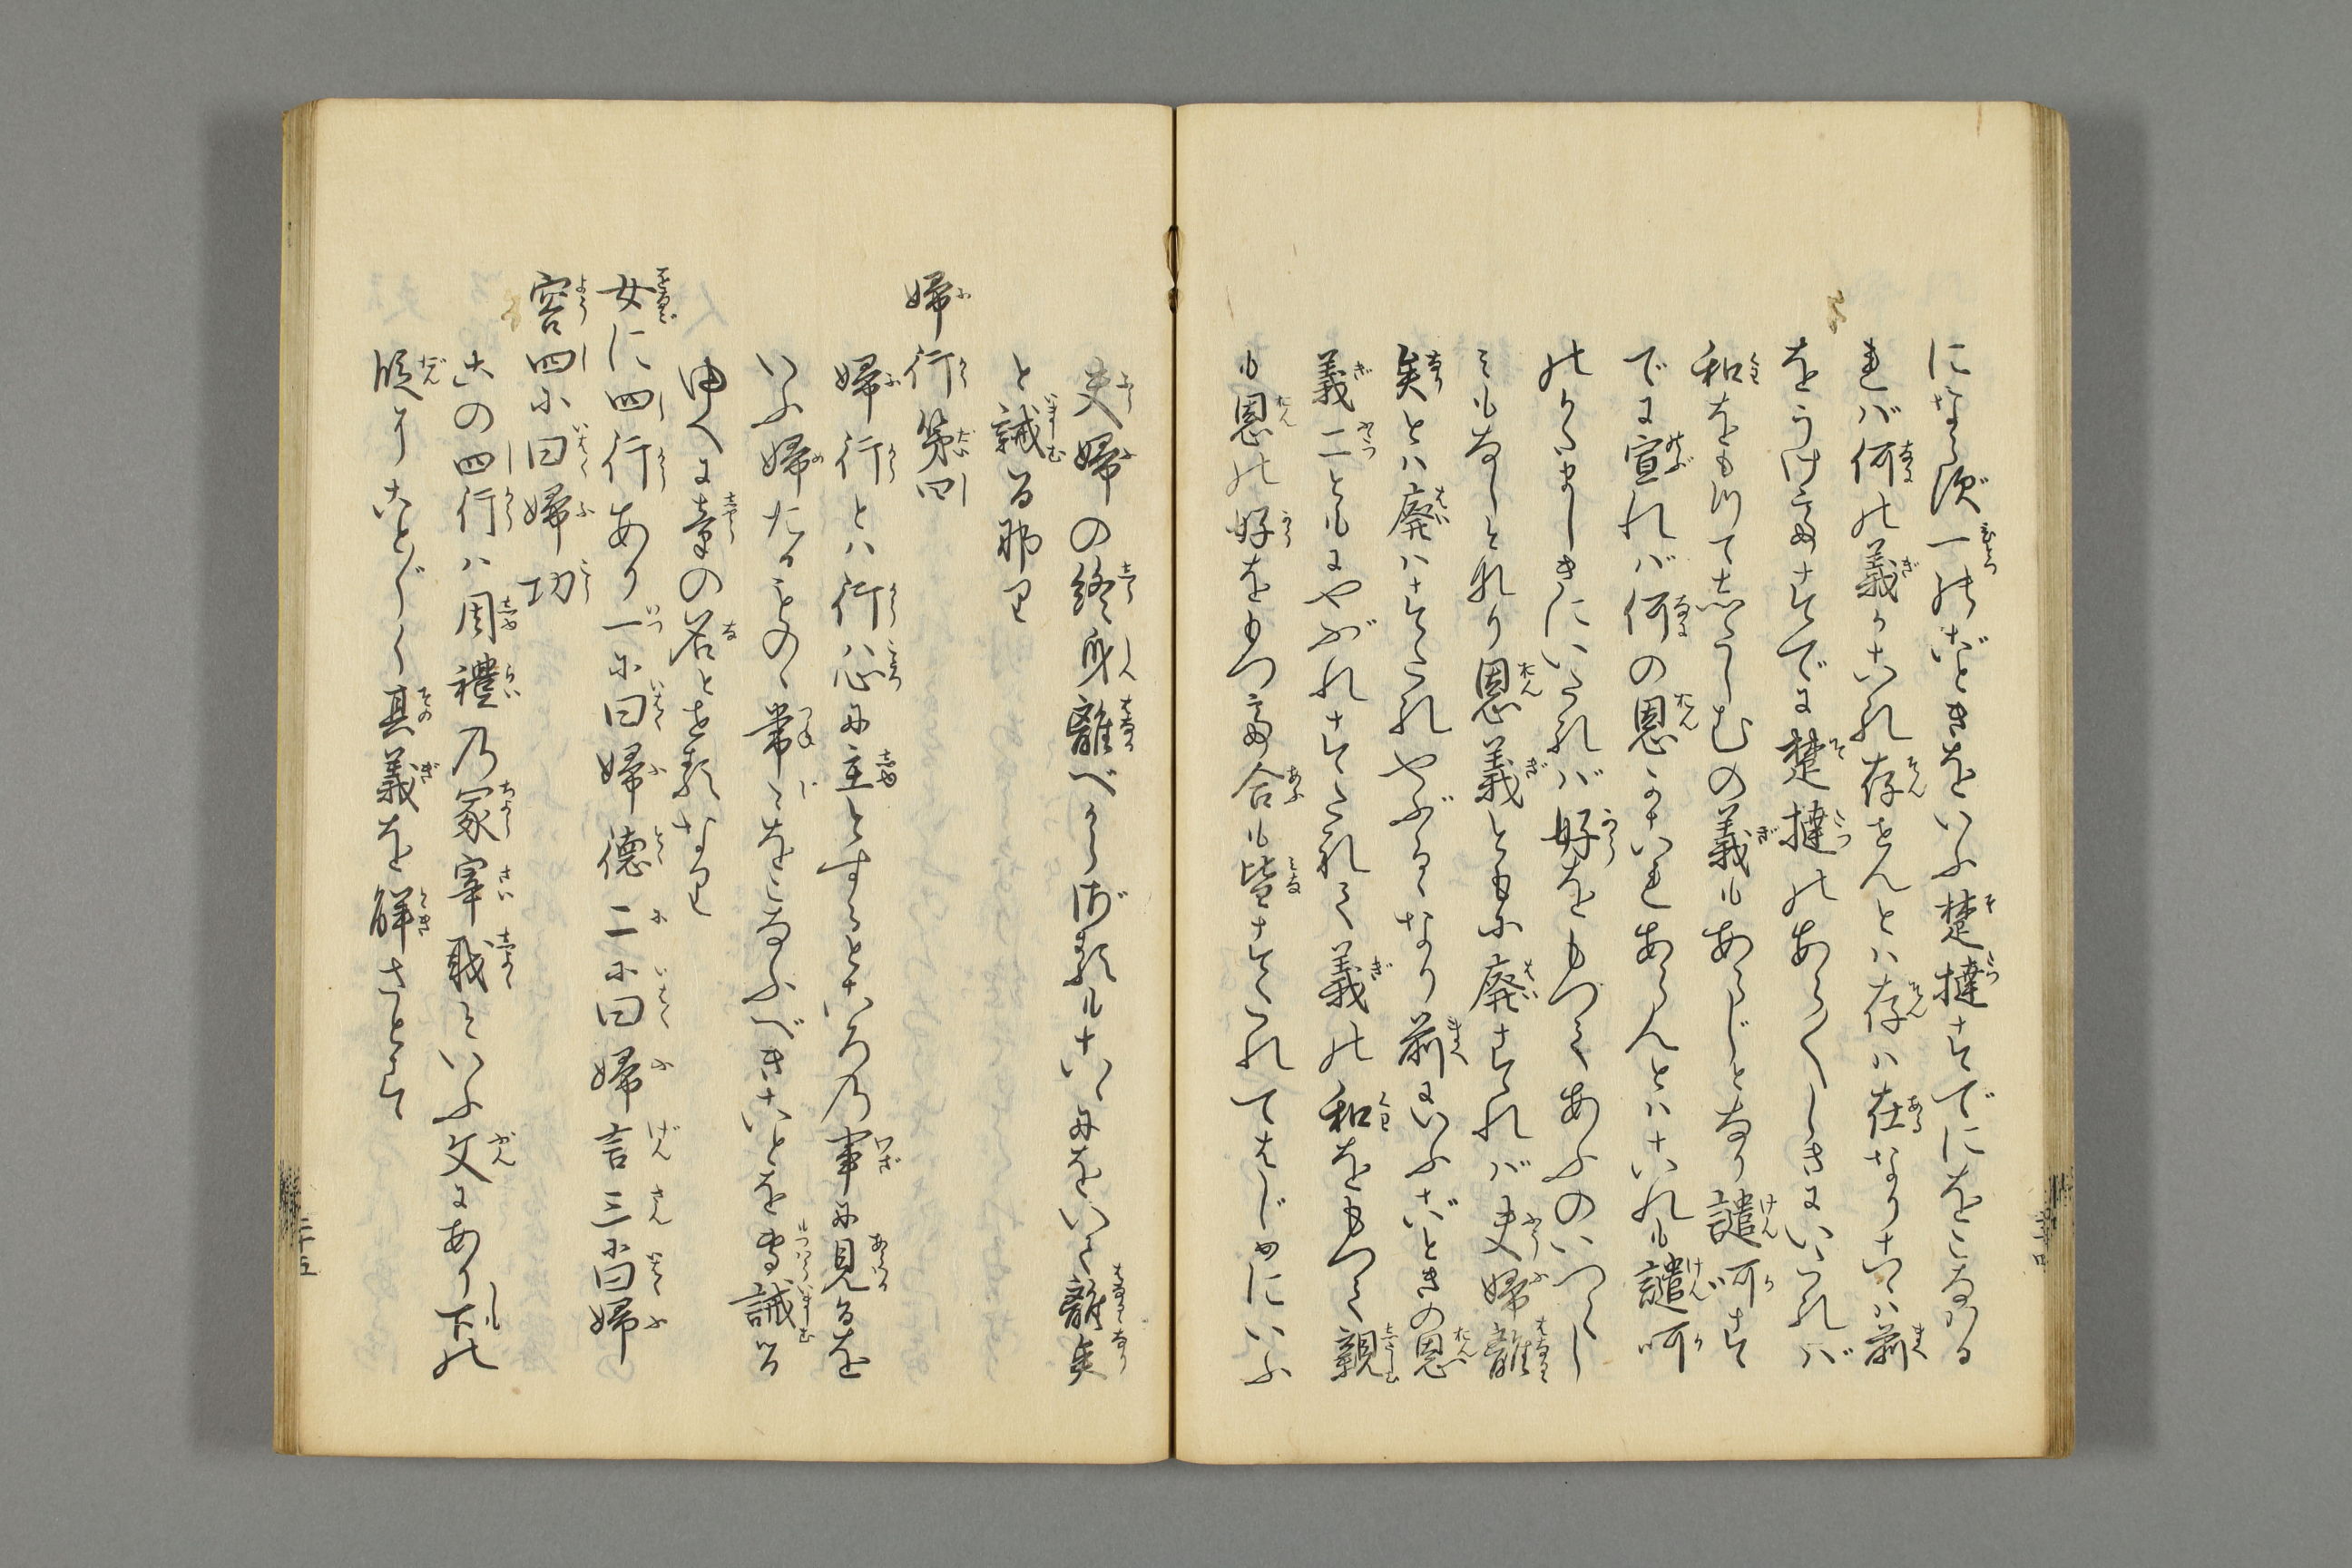 にならず一のごときをいふ楚撻すでにをこなはる
れば何の義かこれ存せんとは存は在なりこゝは前
をうけてすでに楚撻のあら〳〵しきにいたれば
和をもつてしたしむの義もあらじとなり譴呵す
でに宣れば何の恩かこれあらんとはこれも譴呵
のかまびすしきにいたれば好をもつてあふのいつくし
みもなしとなり恩義ともに廃すたれば夫婦離
矣とは廃はすたれやぶるゝなり前にいふごときの恩
義二ともにやぶれすたれて義の和をもつて親
も恩の好をもつて合も皆すたれてはじめにいふ
夫婦の終身離べからざるもこゝにをいて離矣
と誡る耶里
婦行第四
婦行とは行は心に主とするところの事に見るを
いふ婦たるものゝ常にをこなふべきことを専誡る
ゆへに章の名とせるなり
女に四行あり一に曰婦徳二に曰婦言三に曰婦
容四に曰婦功
此の四行は周禮の冢宰職といふ文にあり下の
段にこと〴〵く其義を解さとして
三十五